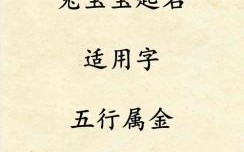 兔宝宝起名
适用字
五行属金